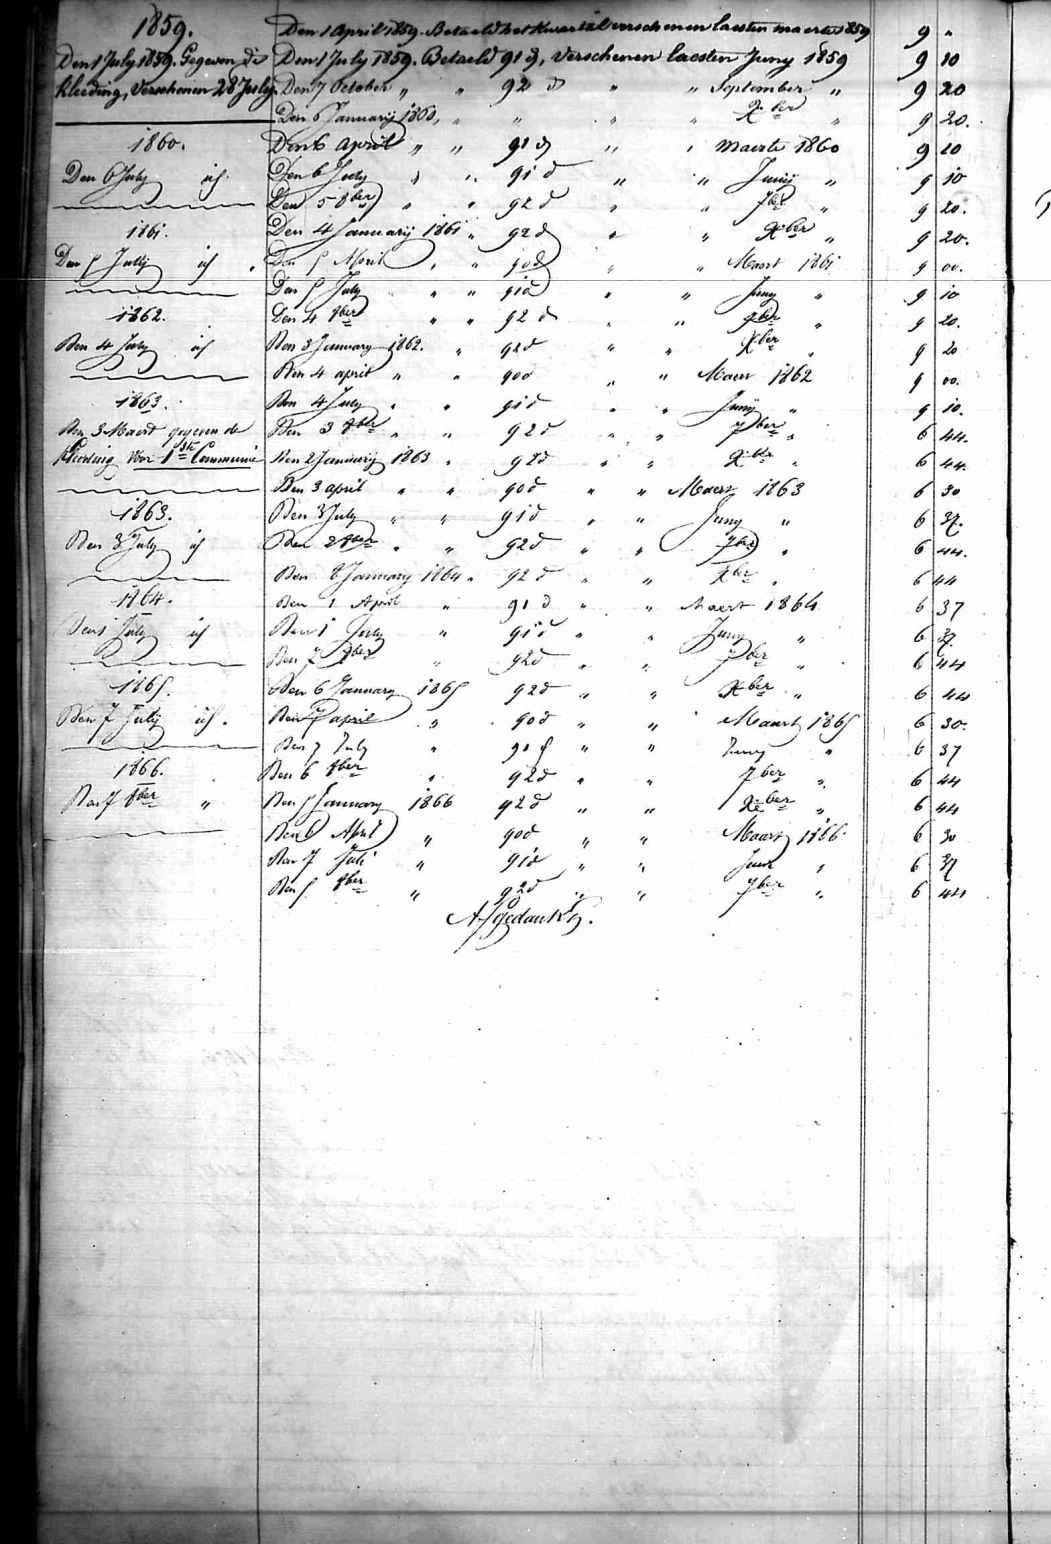 1859. Den 1 April 1859. Betaeld het Kwartal verschenen laesten maerte 1859 9 "
Den 1 July 1859. Gegeven die Den 1 July 1859. Betaeld 91 d, Verschenen laesten Juny 1859 9 10
kleeding, Verschenen 28 July. Den 7 October " " 92 d " " September " 9 20
Den 6 Januarij 1860, " " " " Xber " 9 20.
1860. Den 6 April " " 91 d " " maerte 1860 9 10
Den 6 July id. Den 6 July " " 91 d " " Junij " 9 10
Den 5 8ber " " 92 d " " 7ber " 9 20.
1861. Den 4 Januarij 1861 " 92 d " " Xber " 9 20.
Den 5 Julij id " Den 5 April " " 90 d " Maart 1861 9 00.
Den 5 July " " 91 d " " Juny " 9 10
1862. Den 4 8ber " " 92 d " " 7ber " 9 20.
Den 4 July id Den 3 January 1862. " 92 d " " Xber " 9 20
Den 4 april " " 90 d " " Maert 1862 9 00.
1863. Den 4 July " " 91 d " " Junij " 9 10.
Den 3 Maert gegeven de Den 3 8ber " " 92 d " " 7ber " 6 44.
kleeding voor 1ste Communie Den 2 Januarij 1863 " 92 d " " Xber " 6 44.
Den 3 april " " 90 d " " Maert 1863 6 30
1863. Den 3 July " " 91 d " " Juny " 6 37.
Den 3 July id Den 2 8ber " " 92 d " " 7ber " 6 44.
Den 8 January 1864 " 92 d " " Xber " 6 44
1864. Den 1 April " 91 d " " Maert 1864 6 37
Den 1 July id Den 1 July " 91 d " " Juny " 6 37.
Den 7 8ber " 92 d " " 7ber " 6 44
1865. Den 6 January 1865 92 d " " Xber " 6 44
Den 7 July id. Den 7 april " 90 d " " Maart 1865 6 30.
Den 7 July " 91 d " " Juny " 6 37
1866. Den 6 8ber " 92 d " " 7ber " 6 44
Den 7 8ber " Den 5 January 1866 92 d " " Xber " 6 44
Den 6 April " 90 d " " Maart 1866. 6 30
Den 7 Juli " 91 d " " Juni " 6 37
Den 5 8ber " 92 d " " 7ber " 6 44
Afgedankt.